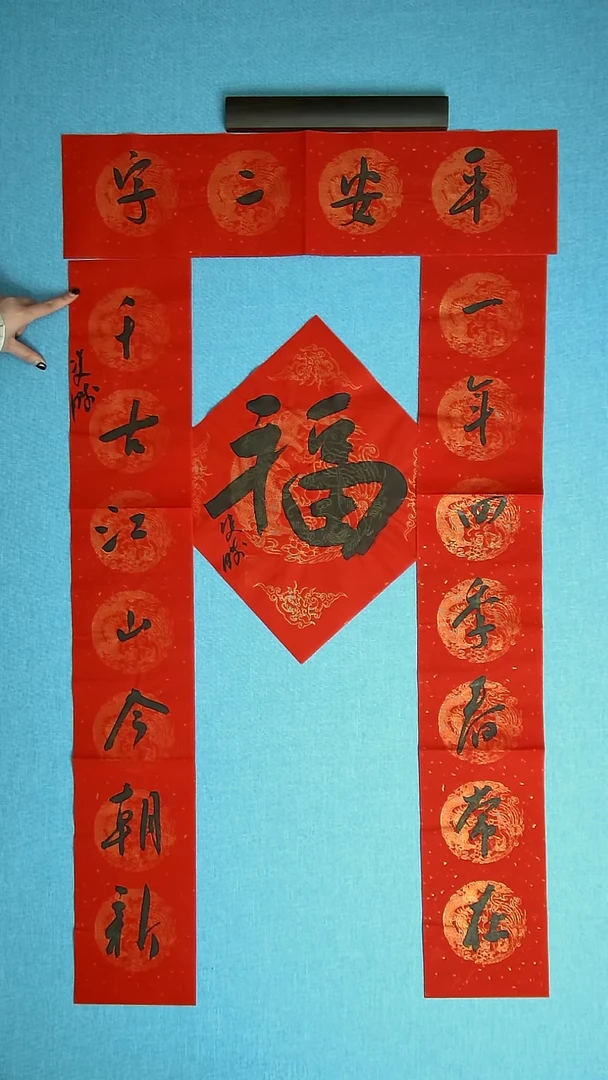 平安二字
一年四季春常在
千古江山今朝新
福